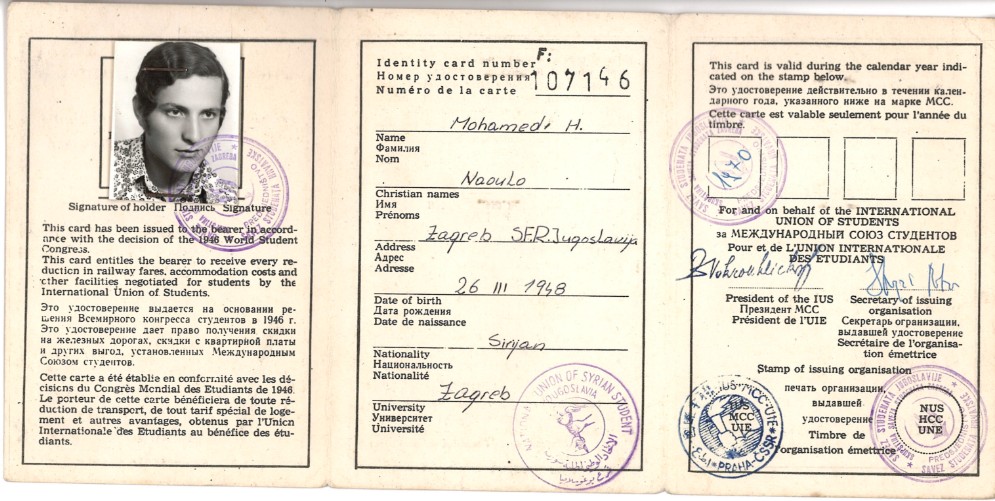 Signature of holder Подпись Signature
This card has been issued to the bearer in accord-
ance with the decision of the 1946 World Student
Congress.
This card entitles the bearer to receive every re-
duction in railway fares, accommodation costs and
other facilities negotiated for students by the
International Union of Students.
Это удостоверение выдается на основании ре-
шения Всемирного конгресса студентов в 1946 г.
Это удостоверение дает право получения скидки
на железных дорогах, скидки с квартирной платы
и других выгод, установленных Международным
Союзом студентов.
Cette carte a été établie en conformité avec les dé-
cisions du Congrès Mondial des Etudiants de 1946.
Le porteur de cette carte bénéficiera de toute ré-
duction de transport, de tout tarif spécial de loge-
ment et autres avantages, obtenus par l'Union
Internationale des Etudiants au bénéfice des étu-
diants.
F:
Identity card number
Номер удостоверения
Numéro de la carte
107146
Mohamedi H.
Name
Фамилия
Nom
Naoulo
Christian names
Имя
Prénoms
Zagreb SFR Jugoslavija
Address
Адрес
Adresse
26 III 1948
Date of birth
Дата рождения
Date de naissance
Sirijan
Nationality
Национальность
Nationalité
Zagreb
University
Университет
Université
UNION OF SYRIAN STUDENT
YUGOSLAVIA
This card is valid during the calendar year indi-
cated on the stamp below.
Это удостоверение действительно в течении кален-
дарного года, указанного ниже на марке МСС.
Cette carte est valable seulement pour l'année du
timbre.
1970
For and on behalf of the INTERNATIONAL
UNION OF STUDENTS
за МЕЖДУНАРОДНЫЙ СОЮЗ СТУДЕНТОВ
Pour et de L'UNION INTERNATIONALE
DES ETUDIANTS
President of the IUS
Президент МСС
Président de l'UIE
Secretary of issuing
organisation
Секретарь огранизации,
выдавшей удостоверение
Secrétaire de l'organisa-
tion émettrice
Stamp of issuing organisation
печать организации,
выдавшей
удостоверение
Timbre de
l'organisation émettrice
IUS*MCC*UIE
IUS
MCC
UIE
PRAHA-CSSR
NUS
HCC
UNE
SAVEZ STUDENATA JUGOSLAVIJE